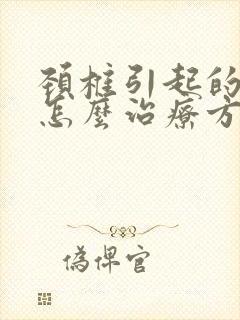 頚椎引起的
怎麼治療方
偽俾官